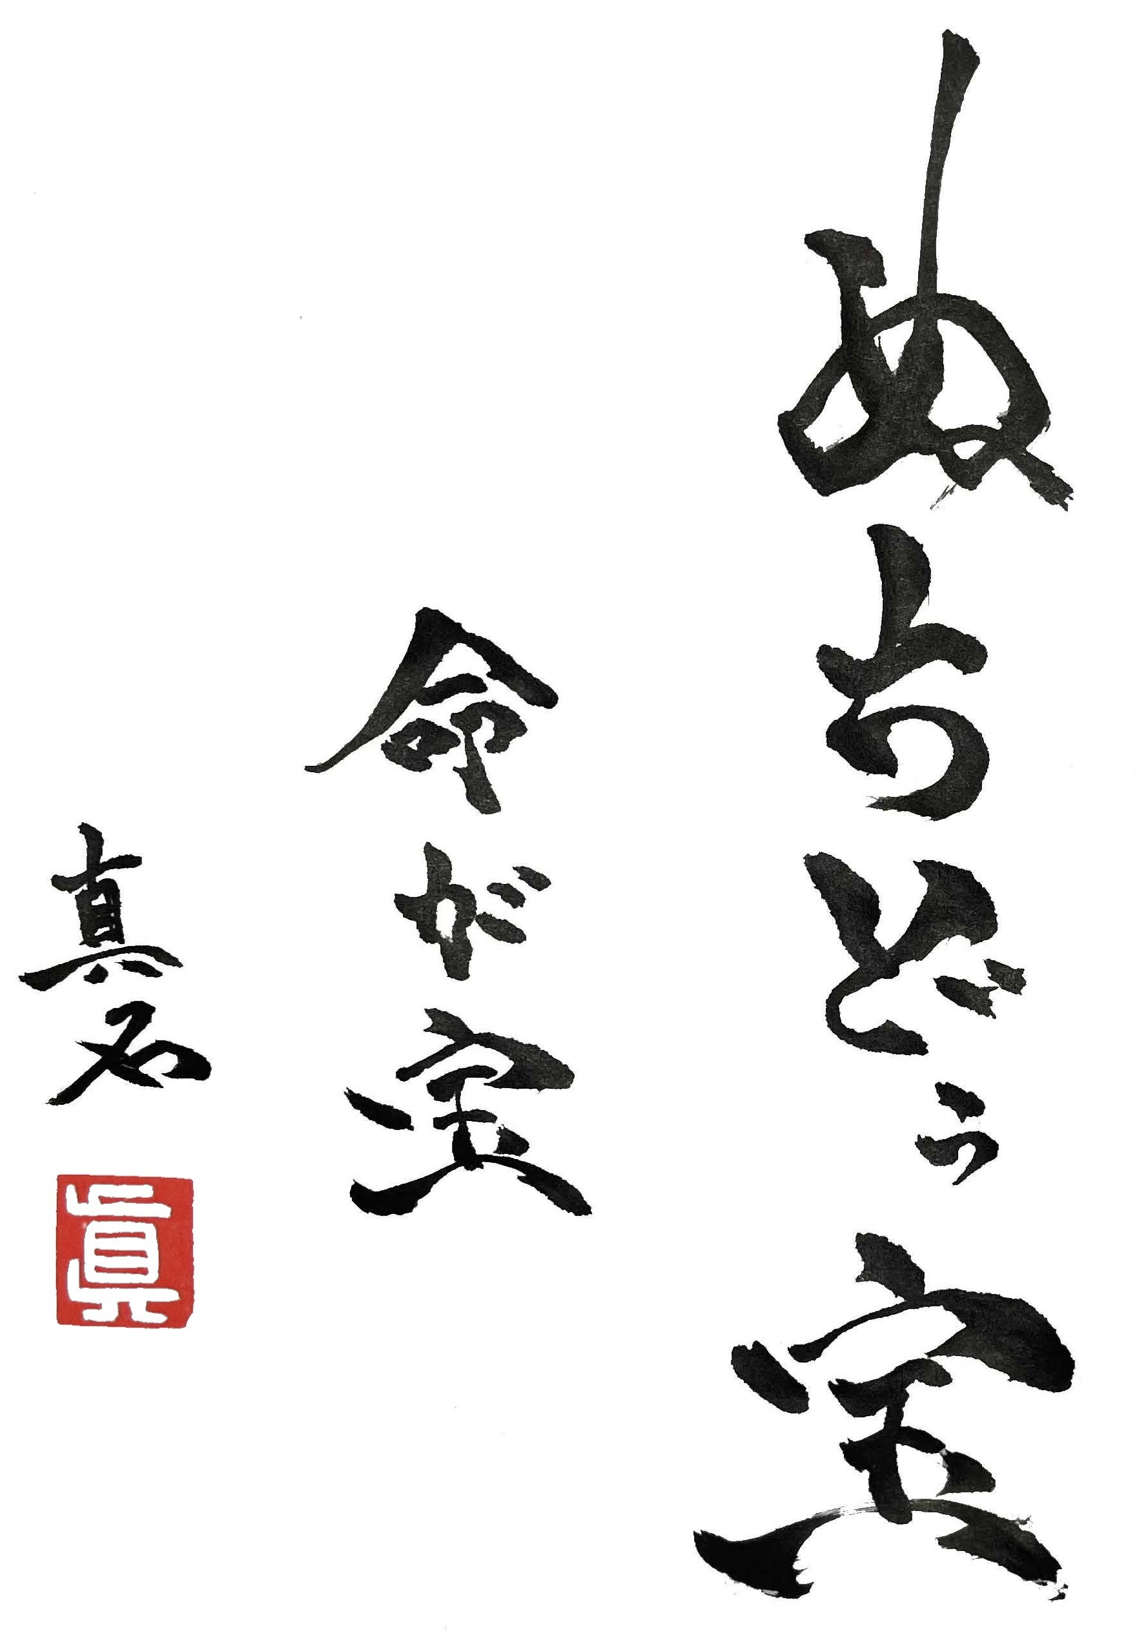 ぬちどぅ宝
命が宝
真石
眞